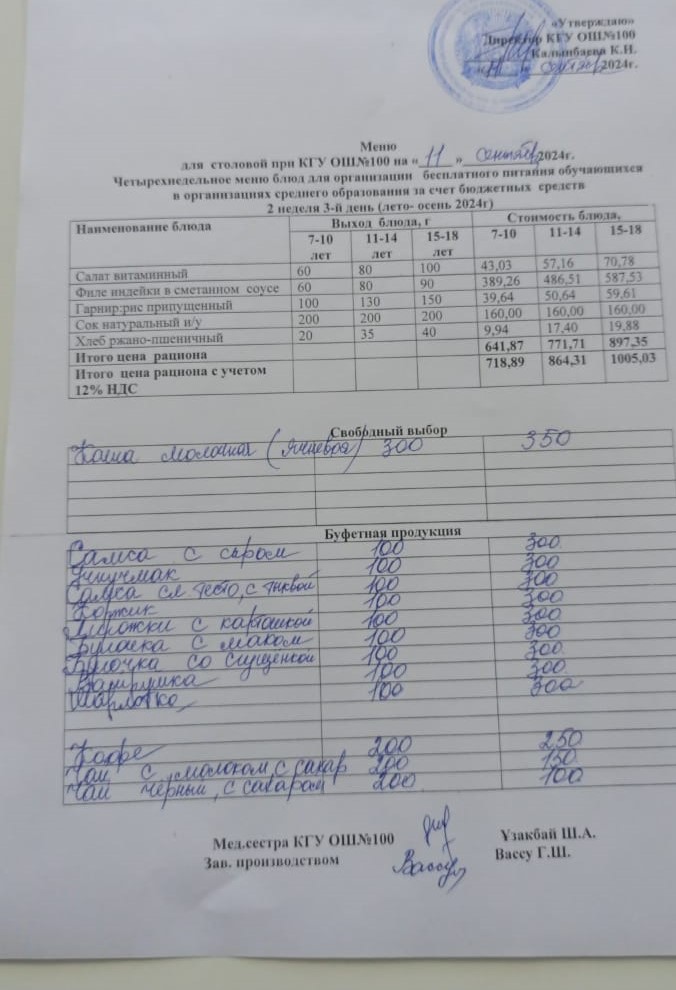 «Утверждаю»
Директор КГУ ОШ№100
Калынбаева К.И.
2024г.
Меню
для столовой при КГУ ОШ№100 на « 11 » сентябр 2024г.
Четырехнедельное меню блюд для организации бесплатного питания обучающихся
в организациях среднего образования за счет бюджетных средств
2 неделя 3-й день (лето- осень 2024г)
Наименование блюда Выход блюда, г Стоимость блюда,
7-10 лет 11-14 лет 15-18 лет 7-10 11-14 15-18
Салат витаминный 60 80 100 43,03 57,16 70,78
Филе индейки в сметанном соусе 60 80 90 389,26 486,51 587,53
Гарнир:рис припущенный 100 130 150 39,64 50,64 59,61
Сок натуральный и/у 200 200 200 160,00 160,00 160,00
Хлеб ржано-пшеничный 20 35 40 9,94 17,40 19,88
Итого цена рациона 641,87 771,71 897,35
Итого цена рациона с учетом 12% НДС 718,89 864,31 1005,03
Свободный выбор
Каша молочная (ячневая) 300 350
Буфетная продукция
Самса с сыром 100 300
Учпучмак 100 300
Самса сл тесто, с тыквой 100 300
Коржик 100 300
Пирожки с картошкой 100 300
Булочка с маком 100 300
Булочка со сгущенкой 100 300
Ватрушка 100 300
Шарлотка 100 300
Кофе 200 250
Чай с молоком, с сахар 200 150
Чай черный, с сахаром 200 100
Мед.сестра КГУ ОШ№100 Ұзакбай Ш.А.
Зав. производством Вассу Вассу Г.Ш.